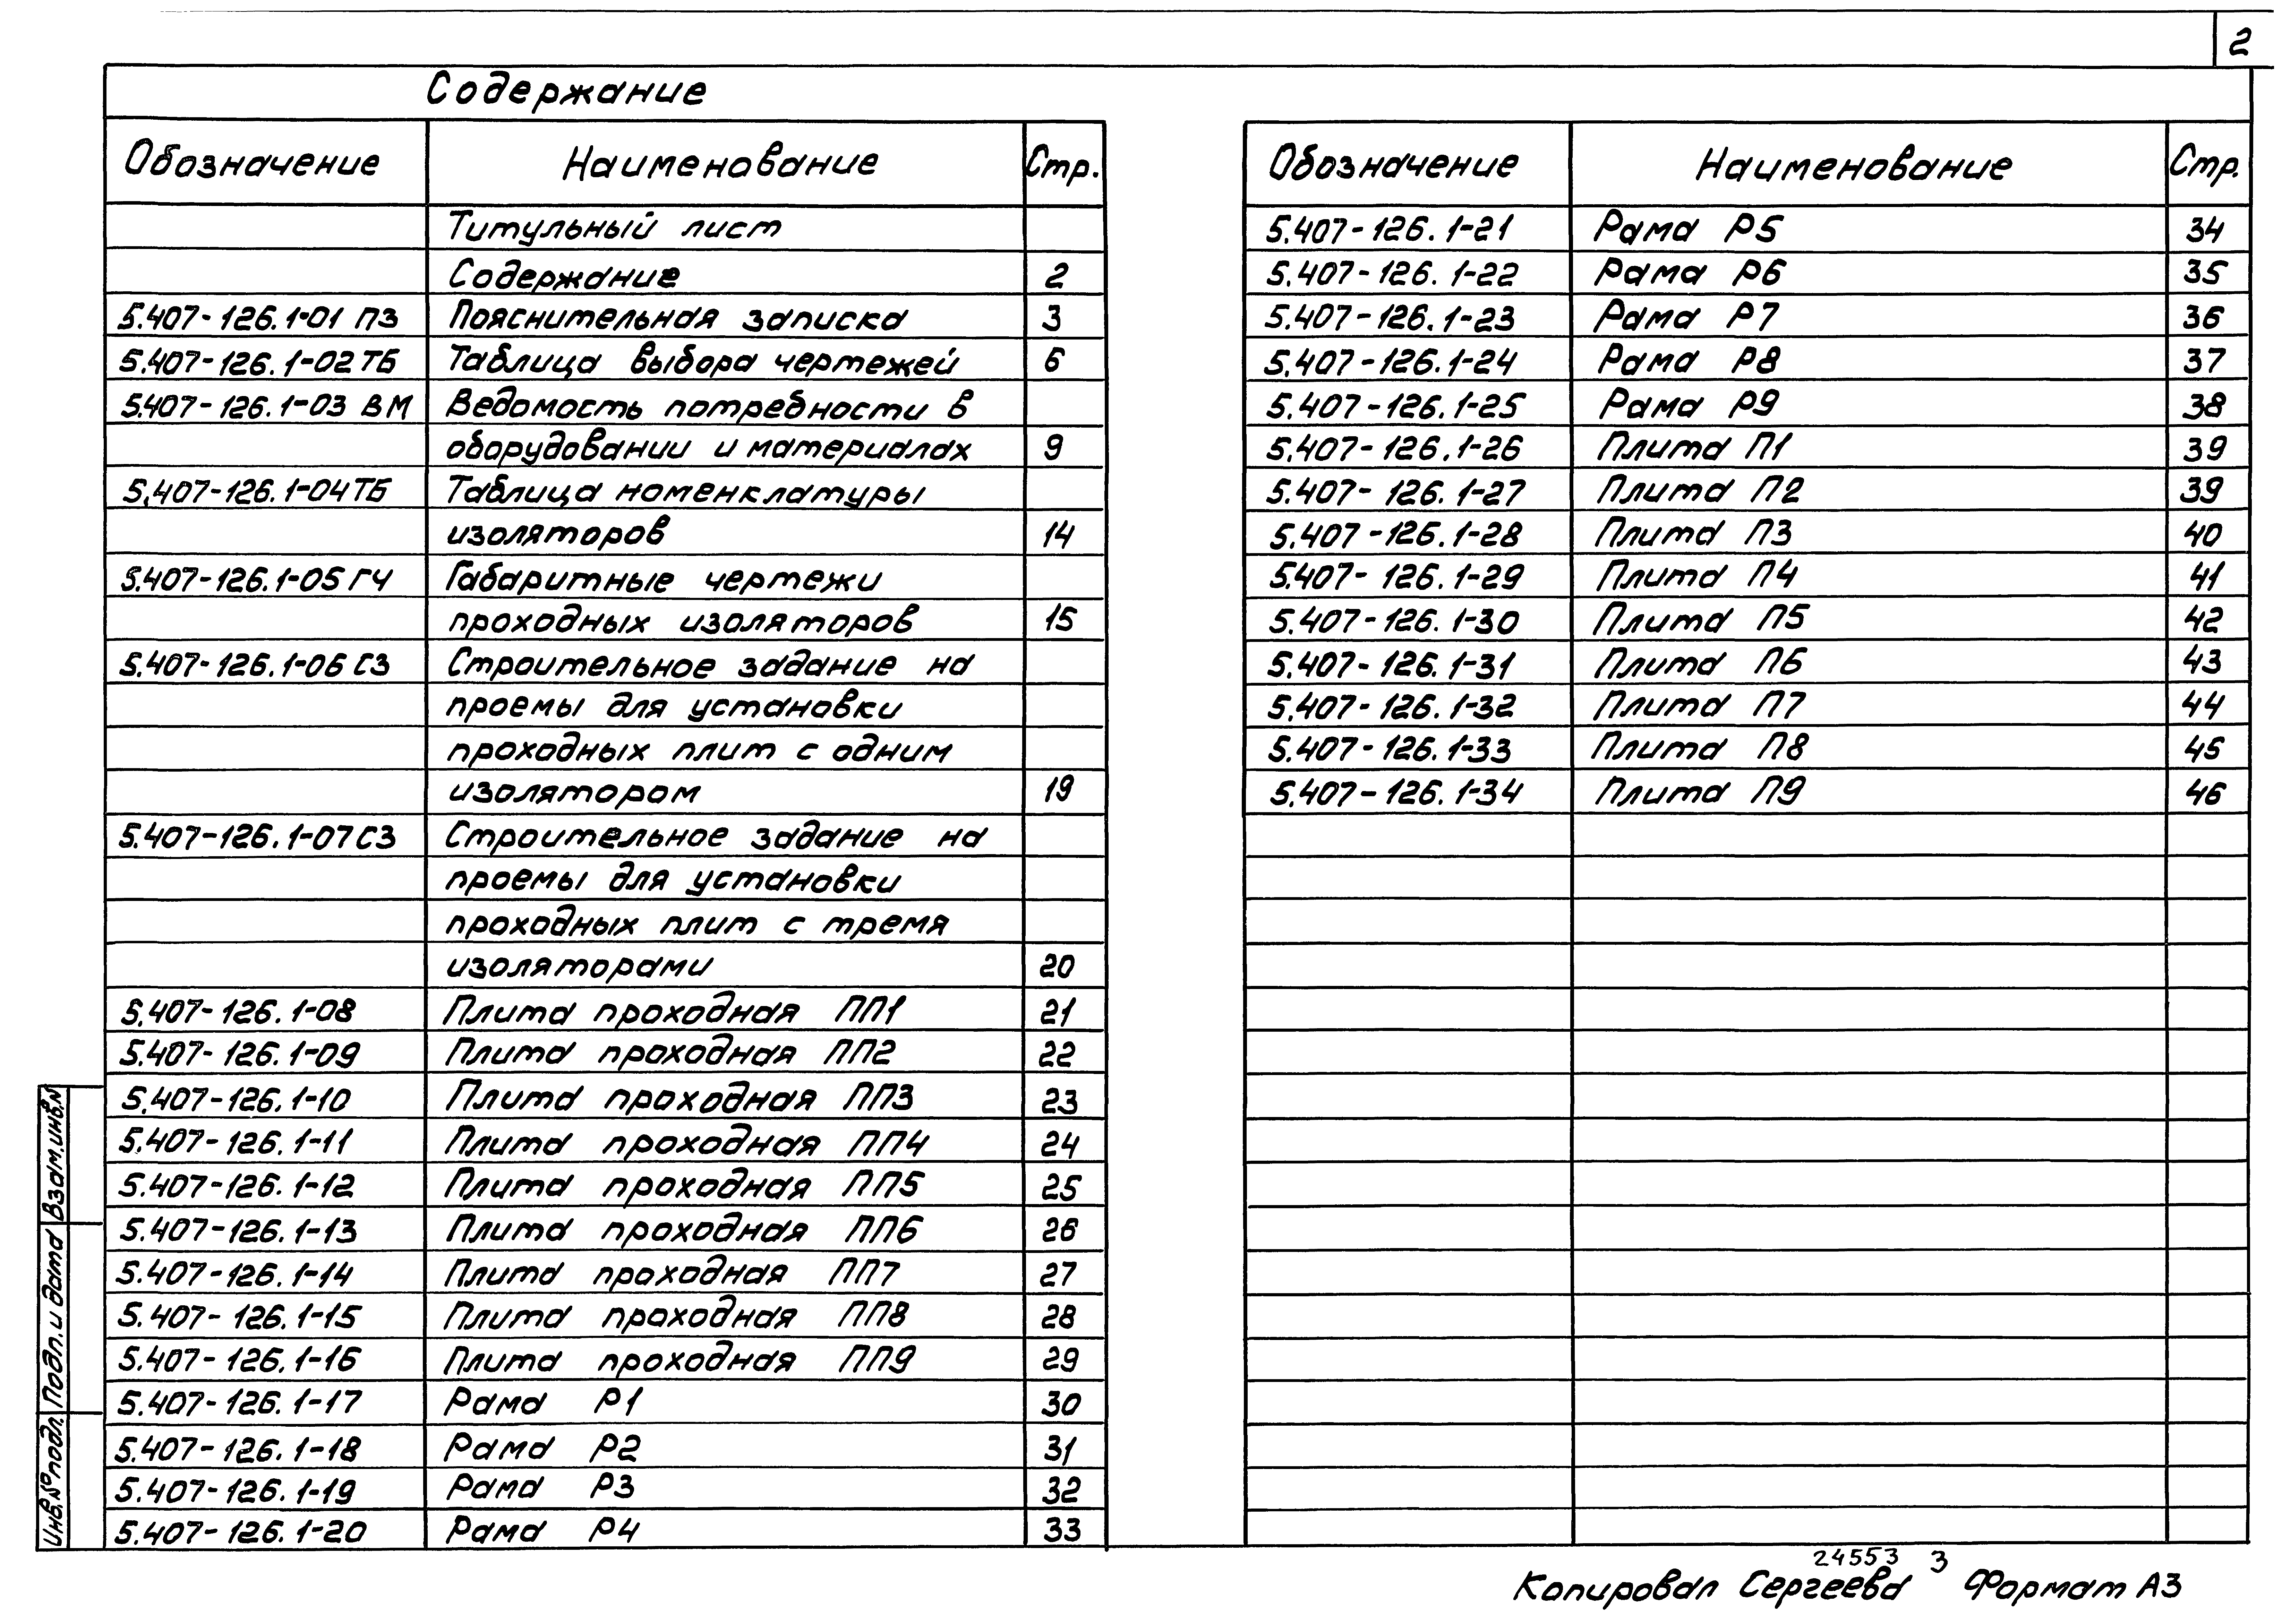 2
Содержание
Обозначение Наименование Стр.
Титульный лист
Содержание 2
5.407-126.1-01 ПЗ Пояснительная записка 3
5.407-126.1-02 ТБ Таблица выбора чертежей 6
5.407-126.1-03 ВМ Ведомость потребности в
оборудовании и материалах 9
5.407-126.1-04 ТБ Таблица номенклатуры
изоляторов 14
5.407-126.1-05 ГЧ Габаритные чертежи
проходных изоляторов 15
5.407-126.1-06 СЗ Строительное задание на
проемы для установки
проходных плит с одним
изолятором 19
5.407-126.1-07 СЗ Строительное задание на
проемы для установки
проходных плит с тремя
изоляторами 20
5.407-126.1-08 Плита проходная ПП1 21
5.407-126.1-09 Плита проходная ПП2 22
5.407-126.1-10 Плита проходная ПП3 23
5.407-126.1-11 Плита проходная ПП4 24
5.407-126.1-12 Плита проходная ПП5 25
5.407-126.1-13 Плита проходная ПП6 26
5.407-126.1-14 Плита проходная ПП7 27
5.407-126.1-15 Плита проходная ПП8 28
5.407-126.1-16 Плита проходная ПП9 29
5.407-126.1-17 Рама Р1 30
5.407-126.1-18 Рама Р2 31
5.407-126.1-19 Рама Р3 32
5.407-126.1-20 Рама Р4 33
Обозначение Наименование Стр.
5.407-126.1-21 Рама Р5 34
5.407-126.1-22 Рама Р6 35
5.407-126.1-23 Рама Р7 36
5.407-126.1-24 Рама Р8 37
5.407-126.1-25 Рама Р9 38
5.407-126.1-26 Плита П1 39
5.407-126.1-27 Плита П2 39
5.407-126.1-28 Плита П3 40
5.407-126.1-29 Плита П4 41
5.407-126.1-30 Плита П5 42
5.407-126.1-31 Плита П6 43
5.407-126.1-32 Плита П7 44
5.407-126.1-33 Плита П8 45
5.407-126.1-34 Плита П9 46
Взам.инв.N
Подп. и дата
Инв.№ подл.
24553 3
Копировал Сергеева Формат А3